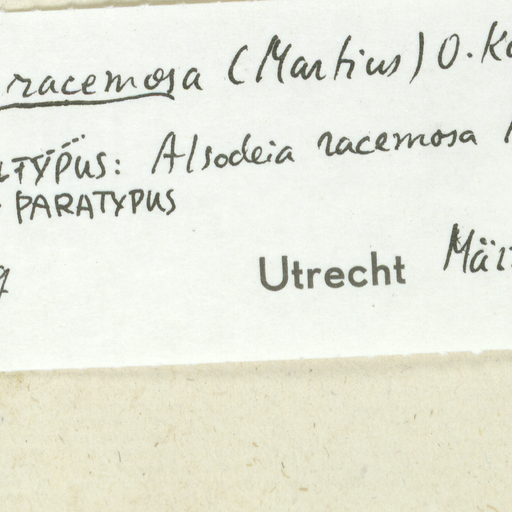 racemosa (Martius) O.
TYPUS: Alsodeia racemosa
PARATYPUS
Utrecht